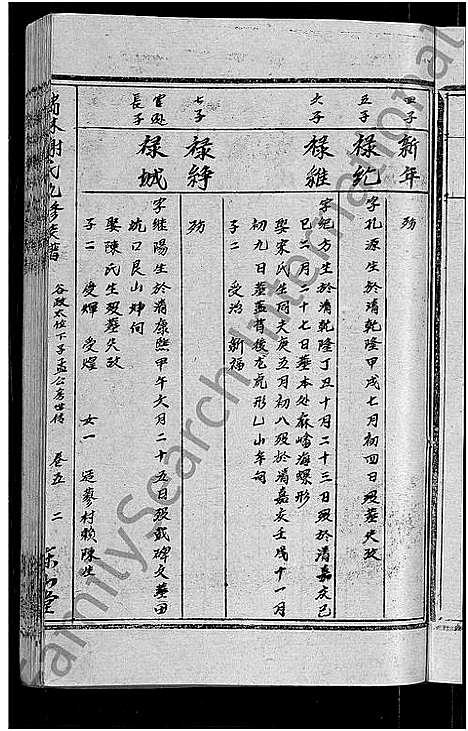 四子
新年
殇
五子
禄纪
字孔源生於清乾隆甲戌七月初四日殁葬失攷
六子
禄维
字纪方生於清乾隆丁丑十月二十三日殁於清嘉庆己
巳二月二十七日葬本处麻嶓海螺形
娶宋氏生同夫庚五月初八殁於清嘉庆壬戌十一月
初九日葬盖背後龙虎形乙山辛向
子二 受治 新福
七子
禄静
殇
长子
禄城
字继阳生於清康熙甲午文月二十五日殁戤碑文葬田
坑口艮山坤向
娶陈氏生殁葬失攷
子二 受辉 受煌 女一 适蓼村赖陈生
谢氏九修族谱
谷政太位下子孟公房世传 卷五 二
FamilySearch International